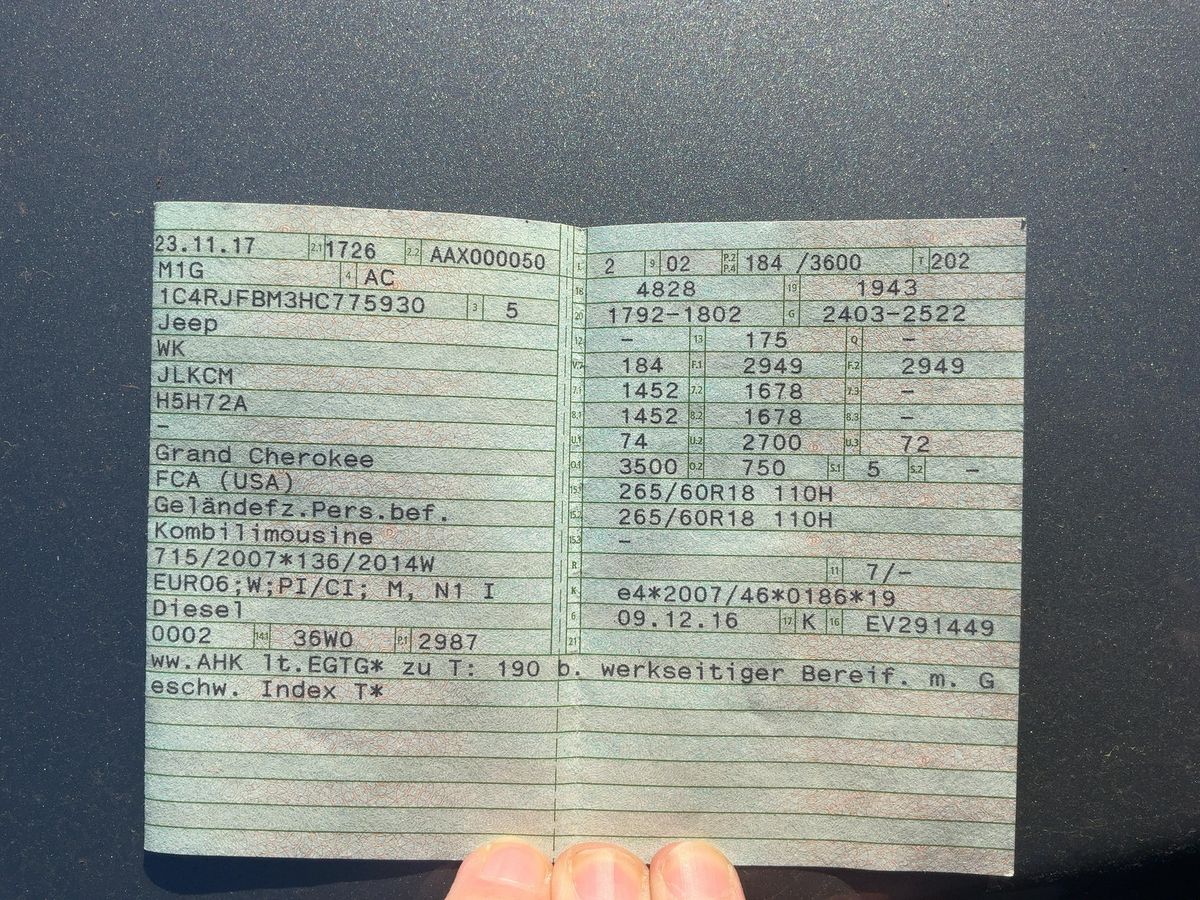 23.11.17 2.1 1726 2.2 AAX000050
M1G 4 AC
1C4RJFBM3HC775930 3 5
Jeep
WK
JLKCM
H5H72A
–
Grand Cherokee
FCA (USA)
Geländefz.Pers.bef.
Kombilimousine
715/2007*136/2014W
EURO6;W;PI/CI; M, N1 I
Diesel
0002 14.1 36W0 P.1 2987
L 2 9 02 P.2 P.4 184 /3600 T 202
18 4828 19 1943
20 1792-1802 G 2403-2522
12 – 13 175 Q –
V.7 184 F.1 2949 F.2 2949
7.1 1452 7.2 1678 7.3 –
8.1 1452 8.2 1678 8.3 –
U.1 74 U.2 2700 U.3 72
O.1 3500 O.2 750 S.1 5 S.2 –
15.1 265/60R18 110H
15.2 265/60R18 110H
15.3 –
R 11 7/–
K e4*2007/46*0186*19
6 09.12.16 17 K 16 EV291449
21
ww.AHK lt.EGTG* zu T: 190 b. werkseitiger Bereif. m. G
eschw. Index T*